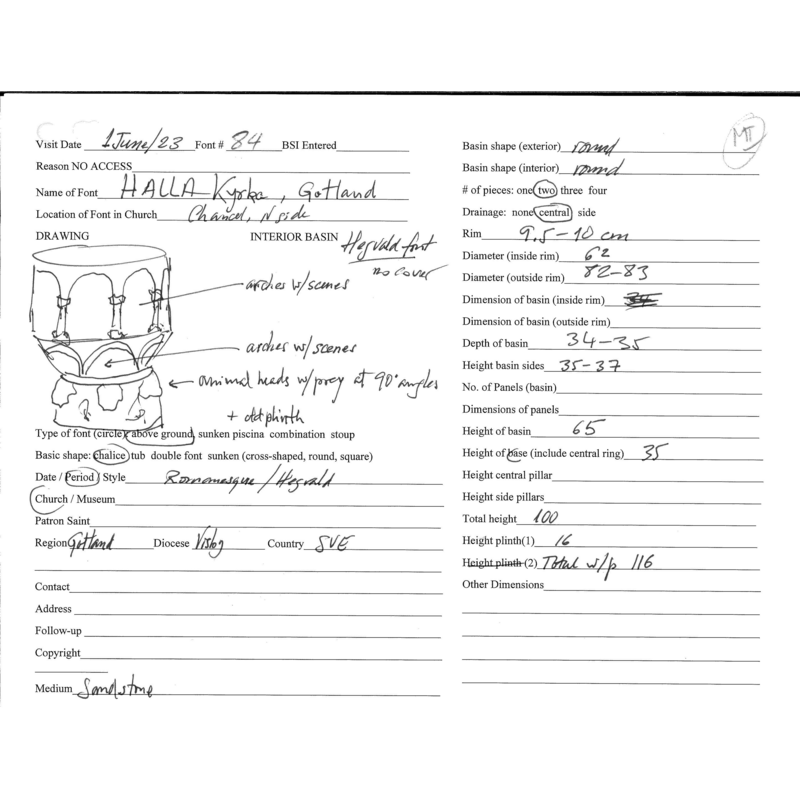 Visit Date 1 June/23 Font # 84 BSI Entered
Reason NO ACCESS
Name of Font HALLA Kyrka, Gotland
Location of Font in Church Chancel, N side
DRAWING INTERIOR BASIN Hegvald font
no cover
arches w/scenes
arches w/scenes
animal heads w/prey at 90° angles
+ old plinth
Type of font (circle) above ground, sunken piscina combination stoup
Basic shape: chalice tub double font sunken (cross-shaped, round, square)
Date / Period / Style Romanesque / Hegvald
Church / Museum
Patron Saint
Region Gotland Diocese Visby Country SVE
Contact
Address
Follow-up
Copyright
Medium Sandstone
MTT
Basin shape (exterior) round
Basin shape (interior) round
# of pieces: one two three four
Drainage: none central side
Rim 9,5-10 cm
Diameter (inside rim) 62
Diameter (outside rim) 82-83
Dimension of basin (inside rim) 34
Dimension of basin (outside rim)
Depth of basin 34-35
Height basin sides 35-37
No. of Panels (basin)
Dimensions of panels
Height of basin 65
Height of base (include central ring) 35
Height central pillar
Height side pillars
Total height 100
Height plinth(1) 16
Height plinth (2) Total w/p 116
Other Dimensions